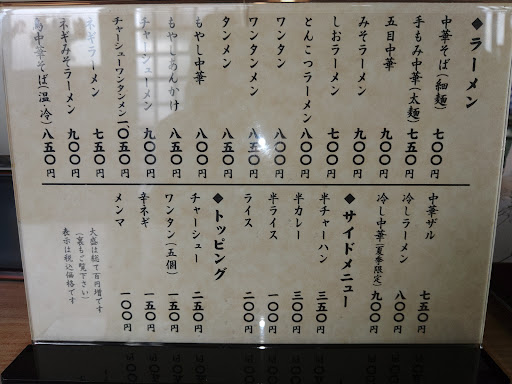 ◆ラーメン
中華そば(細麺) 七〇〇円
手もみ中華(太麺) 七五〇円
五目中華 九〇〇円
みそラーメン 九〇〇円
しおラーメン 七〇〇円
とんこつラーメン 八〇〇円
ワンタン 八〇〇円
ワンタンメン 八五〇円
タンメン 八五〇円
もやし中華 八〇〇円
もやしあんかけ 八五〇円
チャーシューメン 九〇〇円
チャーシューワンタンメン 一、〇五〇円
ネギラーメン 七五〇円
ネギみそラーメン 九〇〇円
鳥中華そば(温・冷) 八五〇円
中華ザル 七五〇円
冷しラーメン 八〇〇円
冷し中華(夏季限定) 九〇〇円
◆サイドメニュー
半チャーハン 三五〇円
半カレー 三〇〇円
半ライス 一〇〇円
ライス 二〇〇円
◆トッピング
チャーシュー 二五〇円
ワンタン(五個) 一五〇円
辛ネギ 一五〇円
メンマ 一〇〇円
大盛は総て百円増です
(裏もご覧下さい)
表示は税込価格です